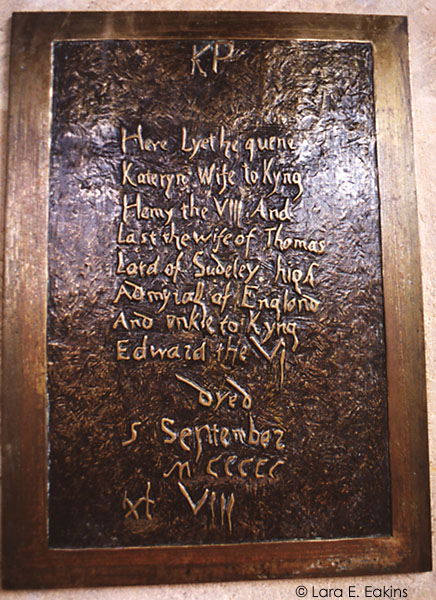 KP
Here Lyethe quene
Kateryn Wife to Kyng
Henry the VIII And
Last the wife of Thomas
Lord of Sudeley high
Admyrall of England
And onkle to Kyng
Edward the VI
dyed
5 September
MCCCCC
xl VIII
© Lara E. Eakins